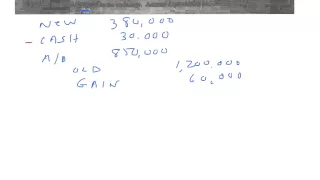 NEW 380,000
- CASH 30.000
A/D 850,000
OLD 1,200.000
GAIN 60,000